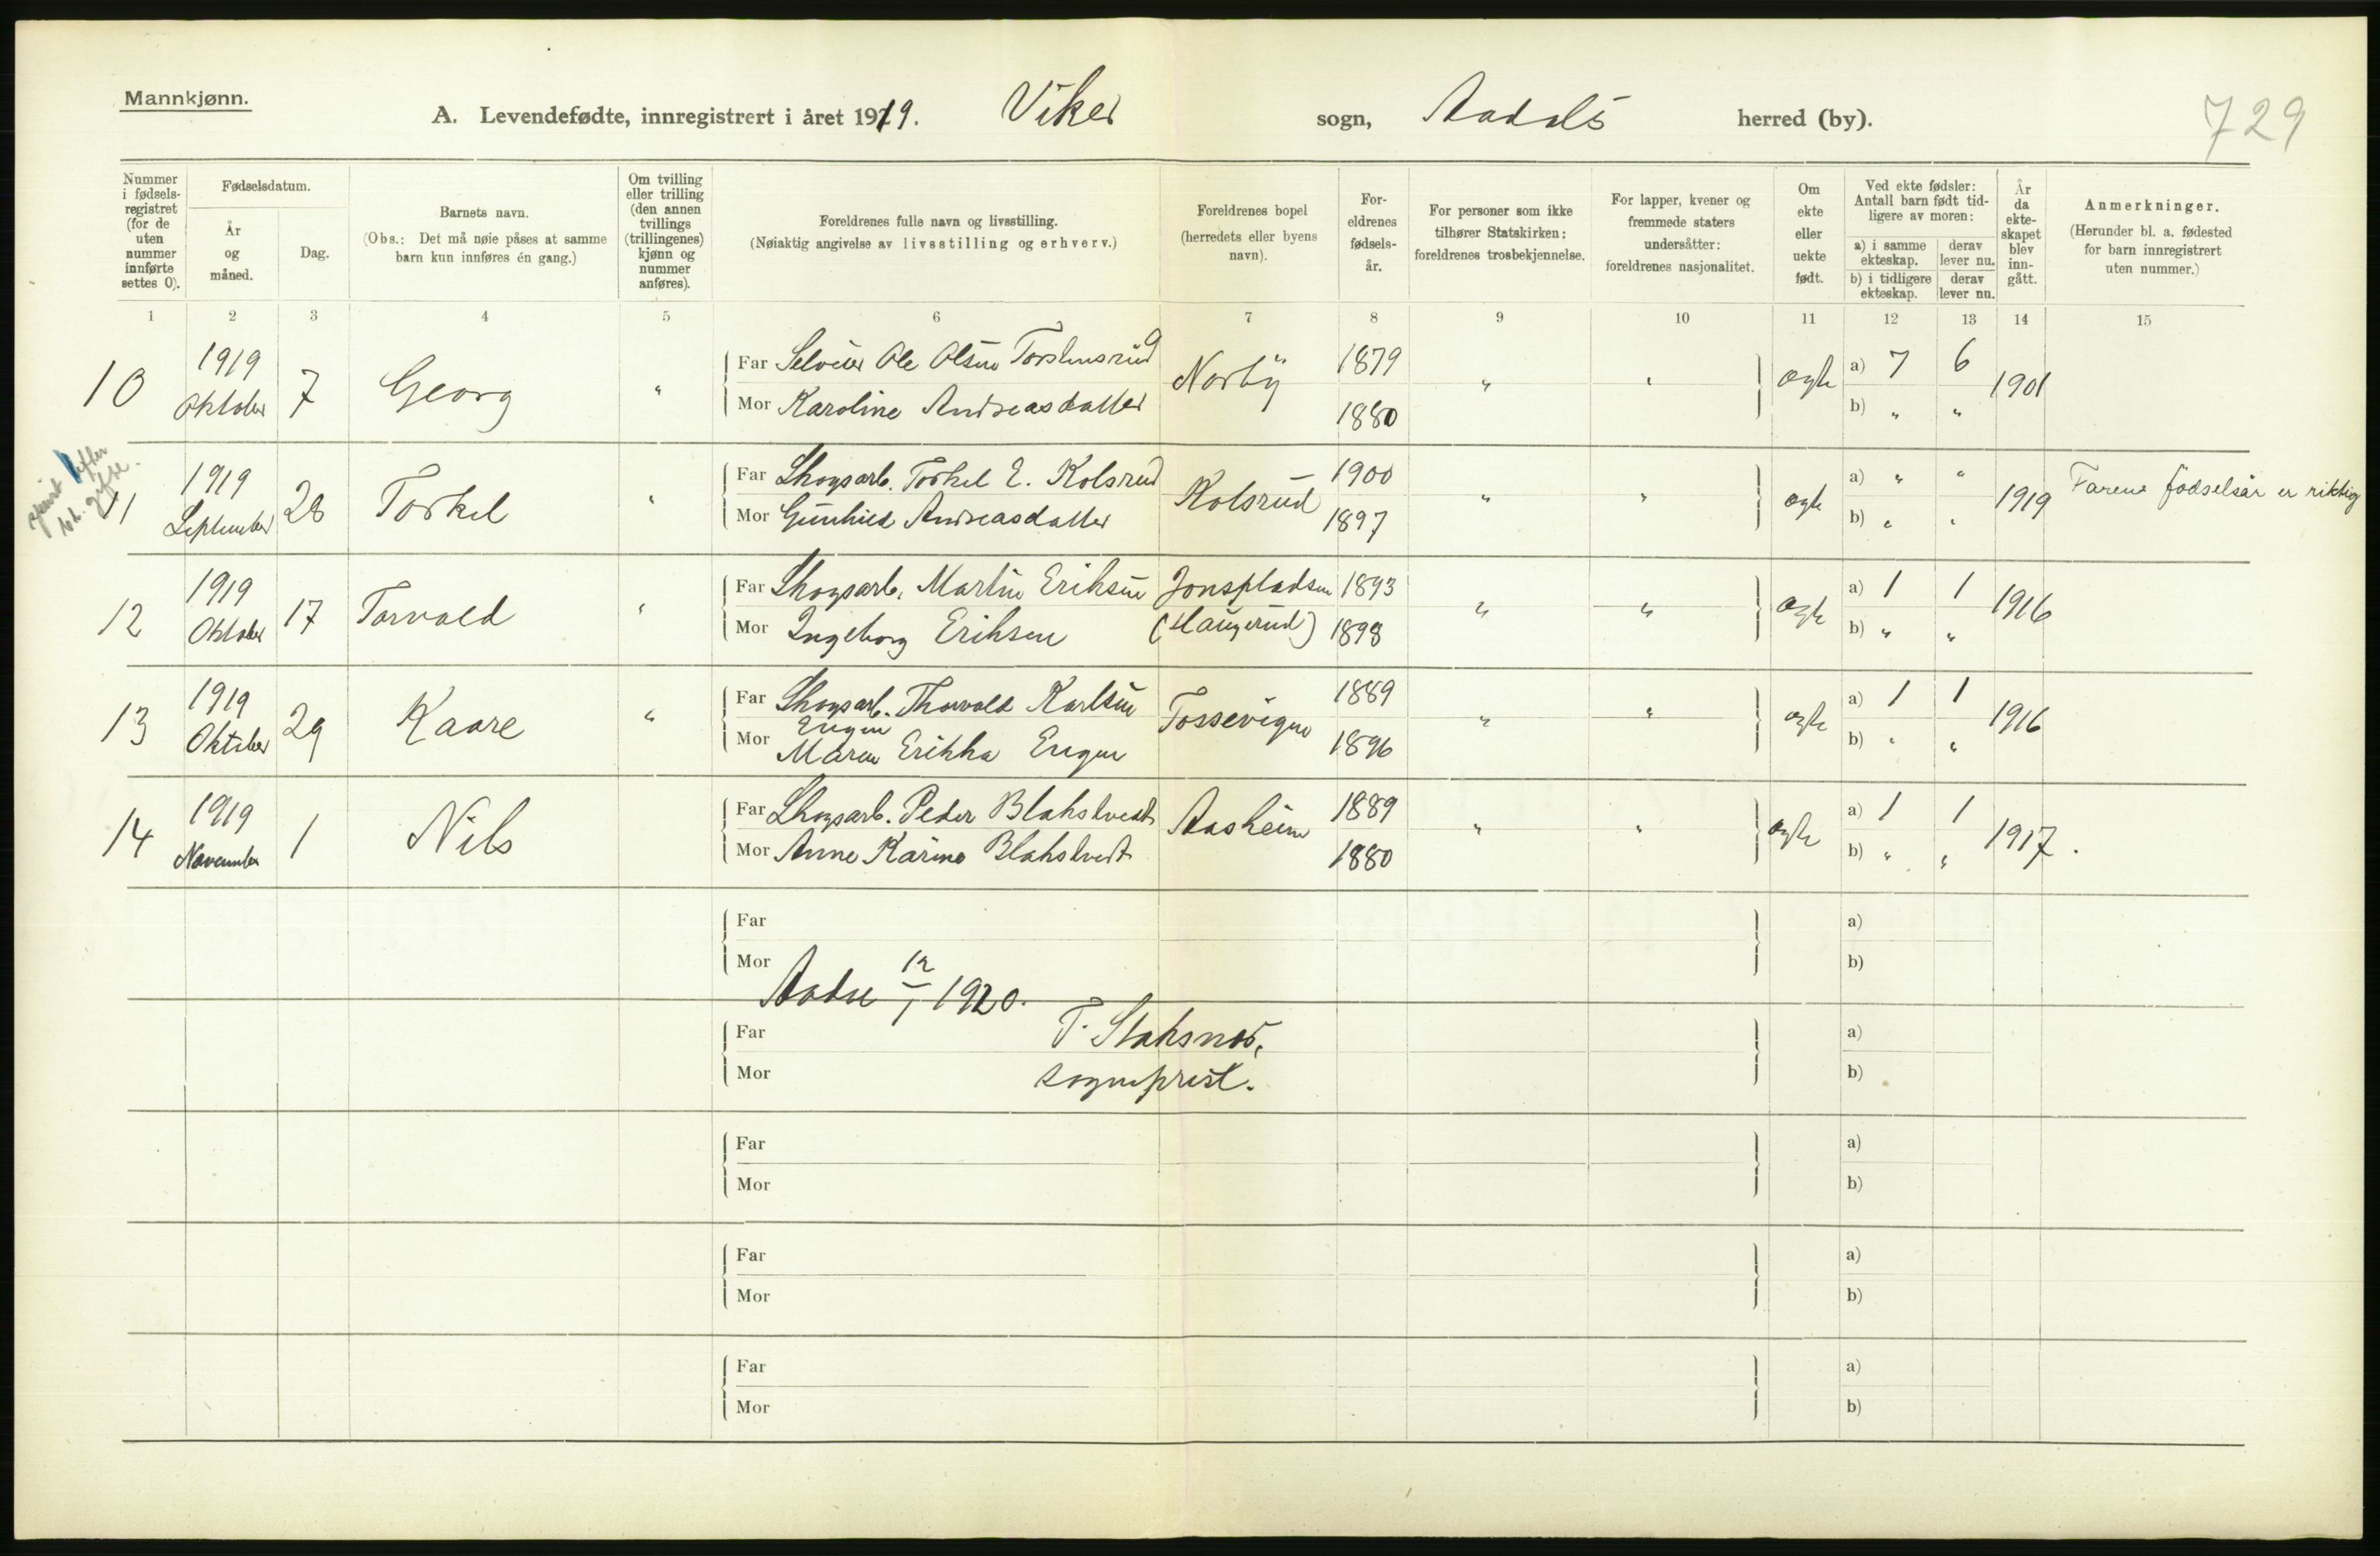 Mannkjønn.
A. Levendefødte, innregistrert i året 1919. Viker sogn, Aadals herred (by).
729
Nummer i fødselsregistret (for de uten nummer innførte settes 0).
Fødselsdatum.
År og måned.
Dag.
Barnets navn.
(Obs.: Det må nøie påses at samme barn kun innføres én gang.)
Om tvilling eller trilling (den annen tvillings (trillingenes) kjønn og nummer anføres).
Foreldrenes fulle navn og livsstilling.
(Nøiaktig angivelse av livsstilling og erhverv.)
Foreldrenes bopel (herredets eller byens navn).
Foreldrenes fødselsår.
For personer som ikke tilhører Statskirken: foreldrenes trosbekjennelse.
For lapper, kvener og fremmede staters undersåtter: foreldrenes nasjonalitet.
Om ekte eller uekte født.
Ved ekte fødsler: Antall barn født tidligere av moren:
a) i samme ekteskap. derav lever nu.
b) i tidligere ekteskap. derav lever nu.
År da ekteskapet blev inngått.
Anmerkninger.
(Herunder bl. a. fødested for barn innregistrert uten nummer.)
1 2 3 4 5 6 7 8 9 10 11 12 13 14 15
10 1919 Oktober 7 Georg " Far Selveier Ole Olsen Torshusrud Norby 1879 " " ægte a) 7 6 1901
Mor Karoline Andreasdatter 1880 b) " "
11 1919 September 28 Torkel " Far Skogsarb. Torkel E. Kolsrud Kolsrud 1900 " " ægte a) " " 1919 Farens fødselsår er riktig
Mor Gunhild Andreasdatter 1897 b) " "
12 1919 Oktober 17 Torvald " Far Skogsarb. Martin Eriksen Jonspladsen 1893 " " ægte a) 1 1 1916
Mor Ingeborg Eriksen (Haugerud) 1898 b) " "
13 1919 Oktober 29 Kaare " Far Skogsarb. Thorvald Karlsen Engen Tossevigen 1889 " " ægte a) 1 1 1916
Mor Maren Erikka Engen 1896 b) " "
14 1919 November 1 Nils Far Skogsarb. Peder Blakstvedt Aasheim 1889 " " ægte a) 1 1 1917.
Mor Anne Karine Blakstvedt 1880 b) " "
Far a)
Mor b)
Aadal 12/1 1920.
Far T. Staksnes, a)
Mor sogneprest. b)
Far a)
Mor b)
Far a)
Mor b)
Far a)
Mor b)